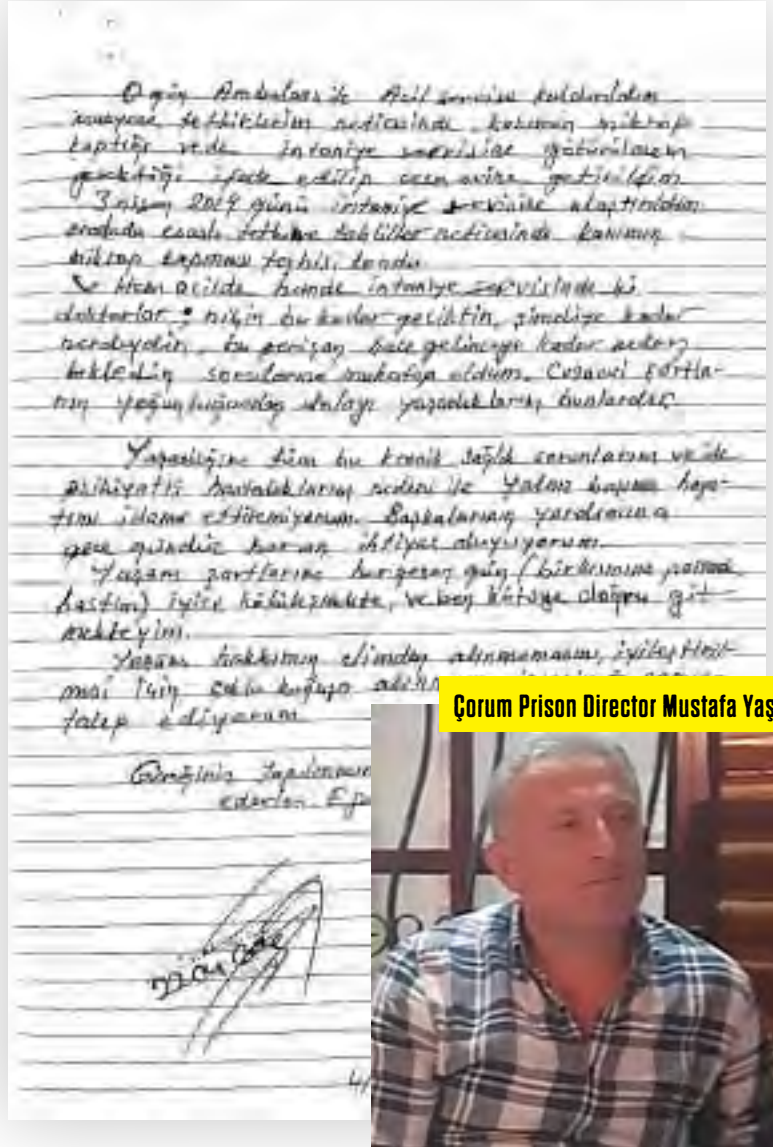 O gün Ambulans ile Acil servise kaldırıldım
muayene tetkiklerim neticesinde, kanımın mikrop
kaptığı ve de intaniye servisine götürülmem
gerektiği ifade edilip cezaevine getirildim
3 nisan 2019 günü intaniye servisine ulaştırıldım
orada da esaslı tetkik ve tahliller neticesinde kanımın
mikrop kapması teşhisi kondu.
Hem acilde hem de intaniye servisinde ki
doktorlar; niçin bu kadar geciktin, şimdiye kadar
nerdeydin, bu perişan hale gelinceye kadar neden
bekledin sorularına muhatap oldum. Cezaevi şartla-
rının yoğunluğundan dolayı yaşadıklarım bunlardır.
Yaşadığım tüm bu kronik sağlık sorunlarım ve de
psikiyatri hastalıklarım nedeni ile Yalnız başıma haya-
tımı idame ettiremiyorum. Başkalarının yardımına
gece gündüz her an ihtiyaç duyuyorum.
Yaşam şartlarım her geçen gün
iyice kötüleşmekte, ve ben kötüye doğru git-
mekteyim.
Yaşam hakkımın elimden alınmaması, iyileştiril-
mesi için çoklu koğuşa
talep ediyorum
Gereğinin Yapılmasını
ederim.
4/
Çorum Prison Director Mustafa Yaş